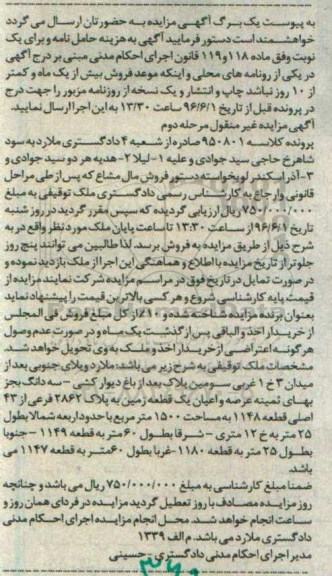 به پیوست یک برگ آگهی مزایده به حضورتان ارسال می گردد
خواهشمند است دستور فرمایید آگهی به هزینه حامل نامه و برای یک
نوبت وفق ماده ۱۱۸ و ۱۱۹ قانون اجرای احکام مدنی مبنی بر درج آگهی
در یکی از روزنامه های محلی و اینکه موعد فروش بیش از یک ماه و کمتر
از ۱۰ روز نباشد چاپ و انتشار و یک نسخه از روزنامه مزبور را جهت درج
در پرونده قبل از تاریخ ۹۶/۶/۱ ساعت ۱۳/۳۰ به این اجرا ارسال نمایید.
آگهی مزایده غیر منقول مرحله دوم
پرونده کلاسه ۹۵۰۸۰۱ صادره از شعبه ۴ دادگستری ملارد به سود
شاهرخ حاجی سید جوادی و علیه ۱- لیلا ۲- هدیه هر دو سید جوادی و
۳- آذر اسکندر لو بخواسته دستور فروش مال مشاع که پس از طی مراحل
قانونی و ارجاع به کارشناس رسمی دادگستری ملک توقیفی به مبلغ
۷۵۰/۰۰۰/۰۰۰ ریال ارزیابی گردیده که سپس مقرر گردید در روز شنبه
تاریخ ۹۶/۶/۱ از ساعت ۱۳:۳۰ تا ساعت پایان ملک مورد نظر واقع در به
شرح ذیل از طریق مزایده به فروش برسد. لذا طالبین می توانند پنج روز
جلوتر از تاریخ مزایده با اطلاع و هماهنگی این اجرا از ملک بازدید نموده و
در صورت تمایل در تاریخ فوق در مراسم مزایده شرکت نمایند مزایده از
قیمت پایه کارشناسی شروع و هر کسی بالاترین قیمت را پیشنهاد نماید
بعنوان برنده مزایده شناخته شده و ۱۰٪ از کل مبلغ فروش فی المجلس
از خریدار اخذ و الباقی پس از گذشت یک ماه و در صورت عدم وصول
هرگونه اعتراضی از خریدار اخذ و ملک به وی تحویل خواهد شد
مشخصات ملک توقیفی به شرح زیر می باشد: ملارد ویلای جنوبی بعد از
میدان ۳ خ ۱ غربی - سومین پلاک بعد از باغ دیوار کشی - سه دانگ بجز
بهای ثمنیه عرصه و اعیان یک قطعه زمین به پلاک ۲۸۶۲ فرعی از ۴۳
اصلی قطعه ۱۱۴۸ به مساحت ۱۵۰۰ متر مربع با حدود اربعه شمالا بطول
۲۵ متر به خ ۱۲ متری - شرقا بطول ۶۰ متر به قطعه ۱۱۴۹ - جنوبا
بطول ۲۵ متر به قطعه ۱۱۸۰ - غربا بطول ۶۰ متر به قطعه ۱۱۴۷ می
باشد.
ضمنا مبلغ کارشناسی به مبلغ ۷۵۰/۰۰۰/۰۰۰ ریال می باشد و چنانچه
روز مزایده مصادف با روز تعطیل گردید مزایده در فردای همان روز و
ساعت انجام خواهد شد. محل انجام مزایده اجرای احکام مدنی
دادگستری ملارد می باشد. م الف ۱۳۳۹
مدیر اجرای احکام مدنی دادگستری - حسینی